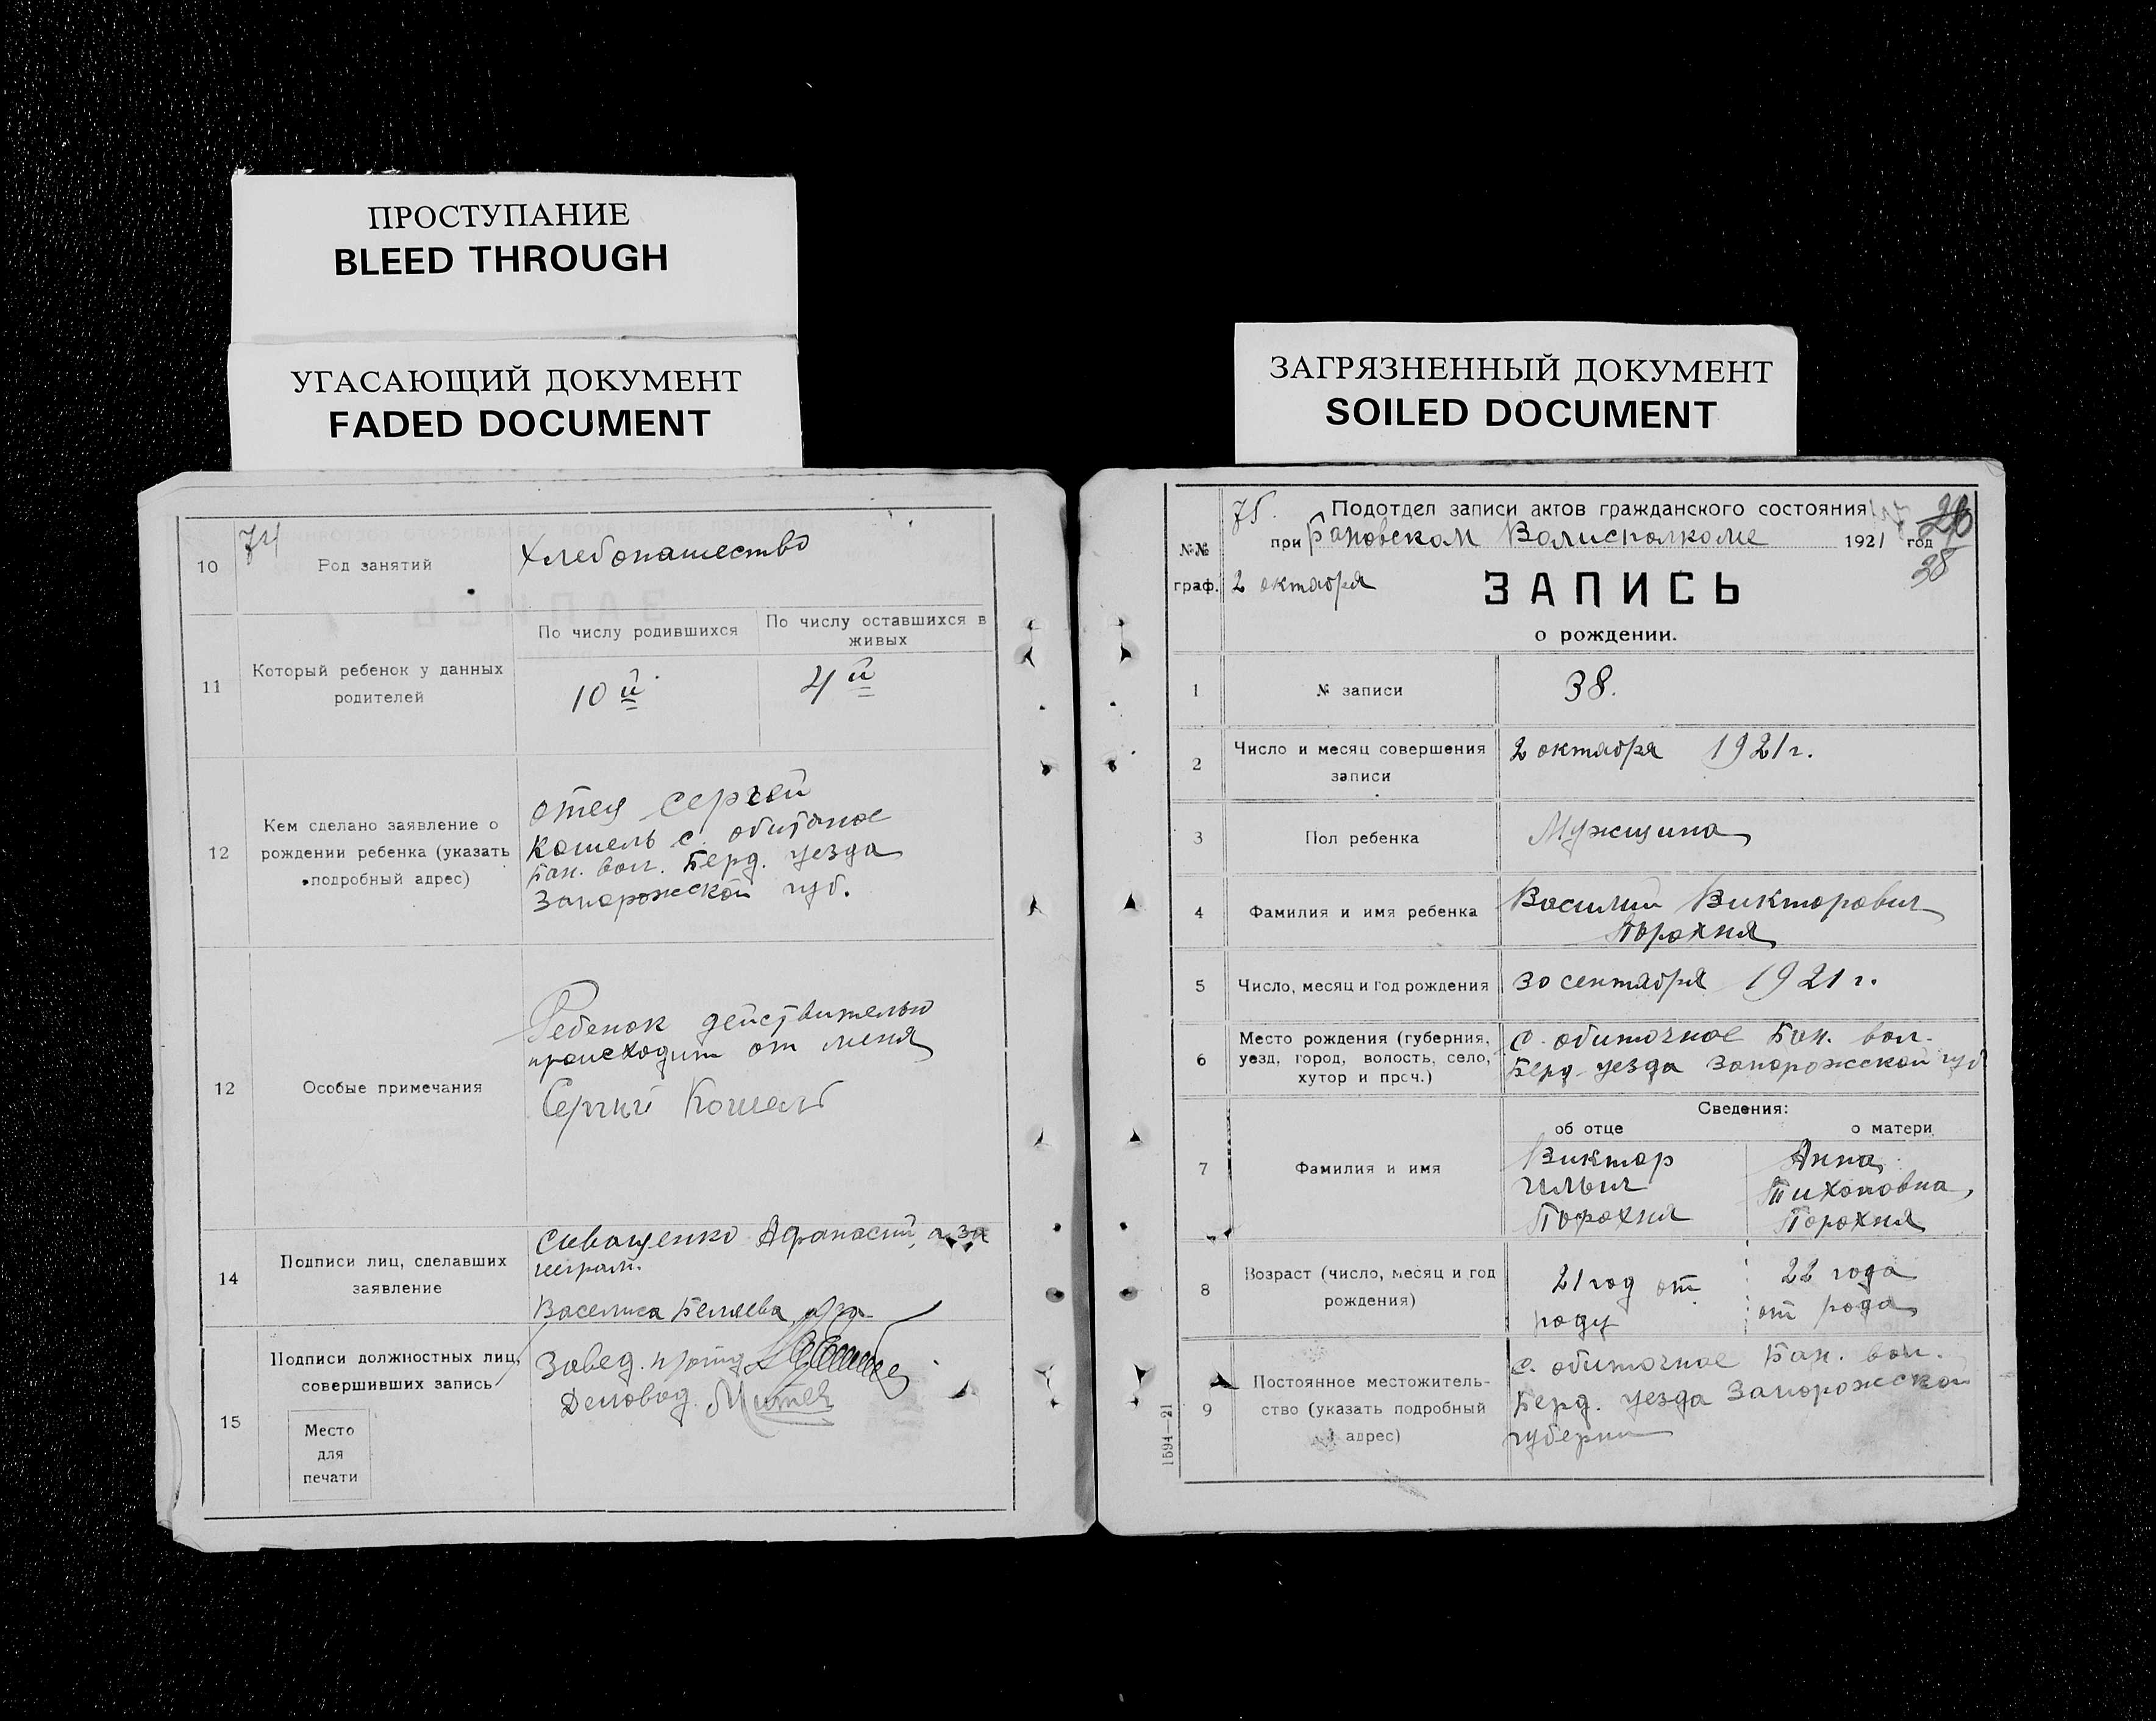 ПРОСТУПАНИЕ
BLEED THROUGH
УГАСАЮЩИЙ ДОКУМЕНТ
FADED DOCUMENT
74
10
Род занятий
Хлебопашество
11
Который ребенок у данных
родителей
По числу родившихся
10й
По числу оставшихся в
живых
4й
12
Кем сделано заявление о
рождении ребенка (указать
подробный адрес)
отец Сергей
Кошель с. обиточное
Бан. вол. Берд. уезда
Запорожской губ.
12
Особые примечания
Ребенок действительно
происходит от меня
Сергий Кошель
14
Подписи лиц, сделавших
заявление
Афанасий, а за
неграм.
Василиса Беляева, а за
15
Подписи должностных лиц,
совершивших запись
Место
для
печати
Завед.
Деловод.
ЗАГРЯЗНЕННЫЙ ДОКУМЕНТ
SOILED DOCUMENT
75.
Подотдел записи актов гражданского состояния
26
№№
граф.
при Бановском Волисполкоме 1921 год
38
2 октября
ЗАПИСЬ
о рождении.
1
№ записи
38.
2
Число и месяц совершения
записи
2 октября 1921 г.
3
Пол ребенка
Мужщина
4
Фамилия и имя ребенка
Василий Викторович
Порохня
5
Число, месяц и год рождения
30 сентября 1921 г.
6
Место рождения (губерния,
уезд, город, волость, село,
хутор и проч.)
с. обиточное Бан. вол.
Берд. уезда Запорожской губ
Сведения:
об отце
о матери
7
Фамилия и имя
Виктор
Ильич
Порохня
Анна
Тихоновна,
Порохня
8
Возраст (число, месяц и год
рождения)
21 год от
роду
22 года
от рода
9
Постоянное местожитель-
ство (указать подробный
адрес)
с. обиточное Бан. вол.
Берд. уезда Запорожской
губерни
1594—21